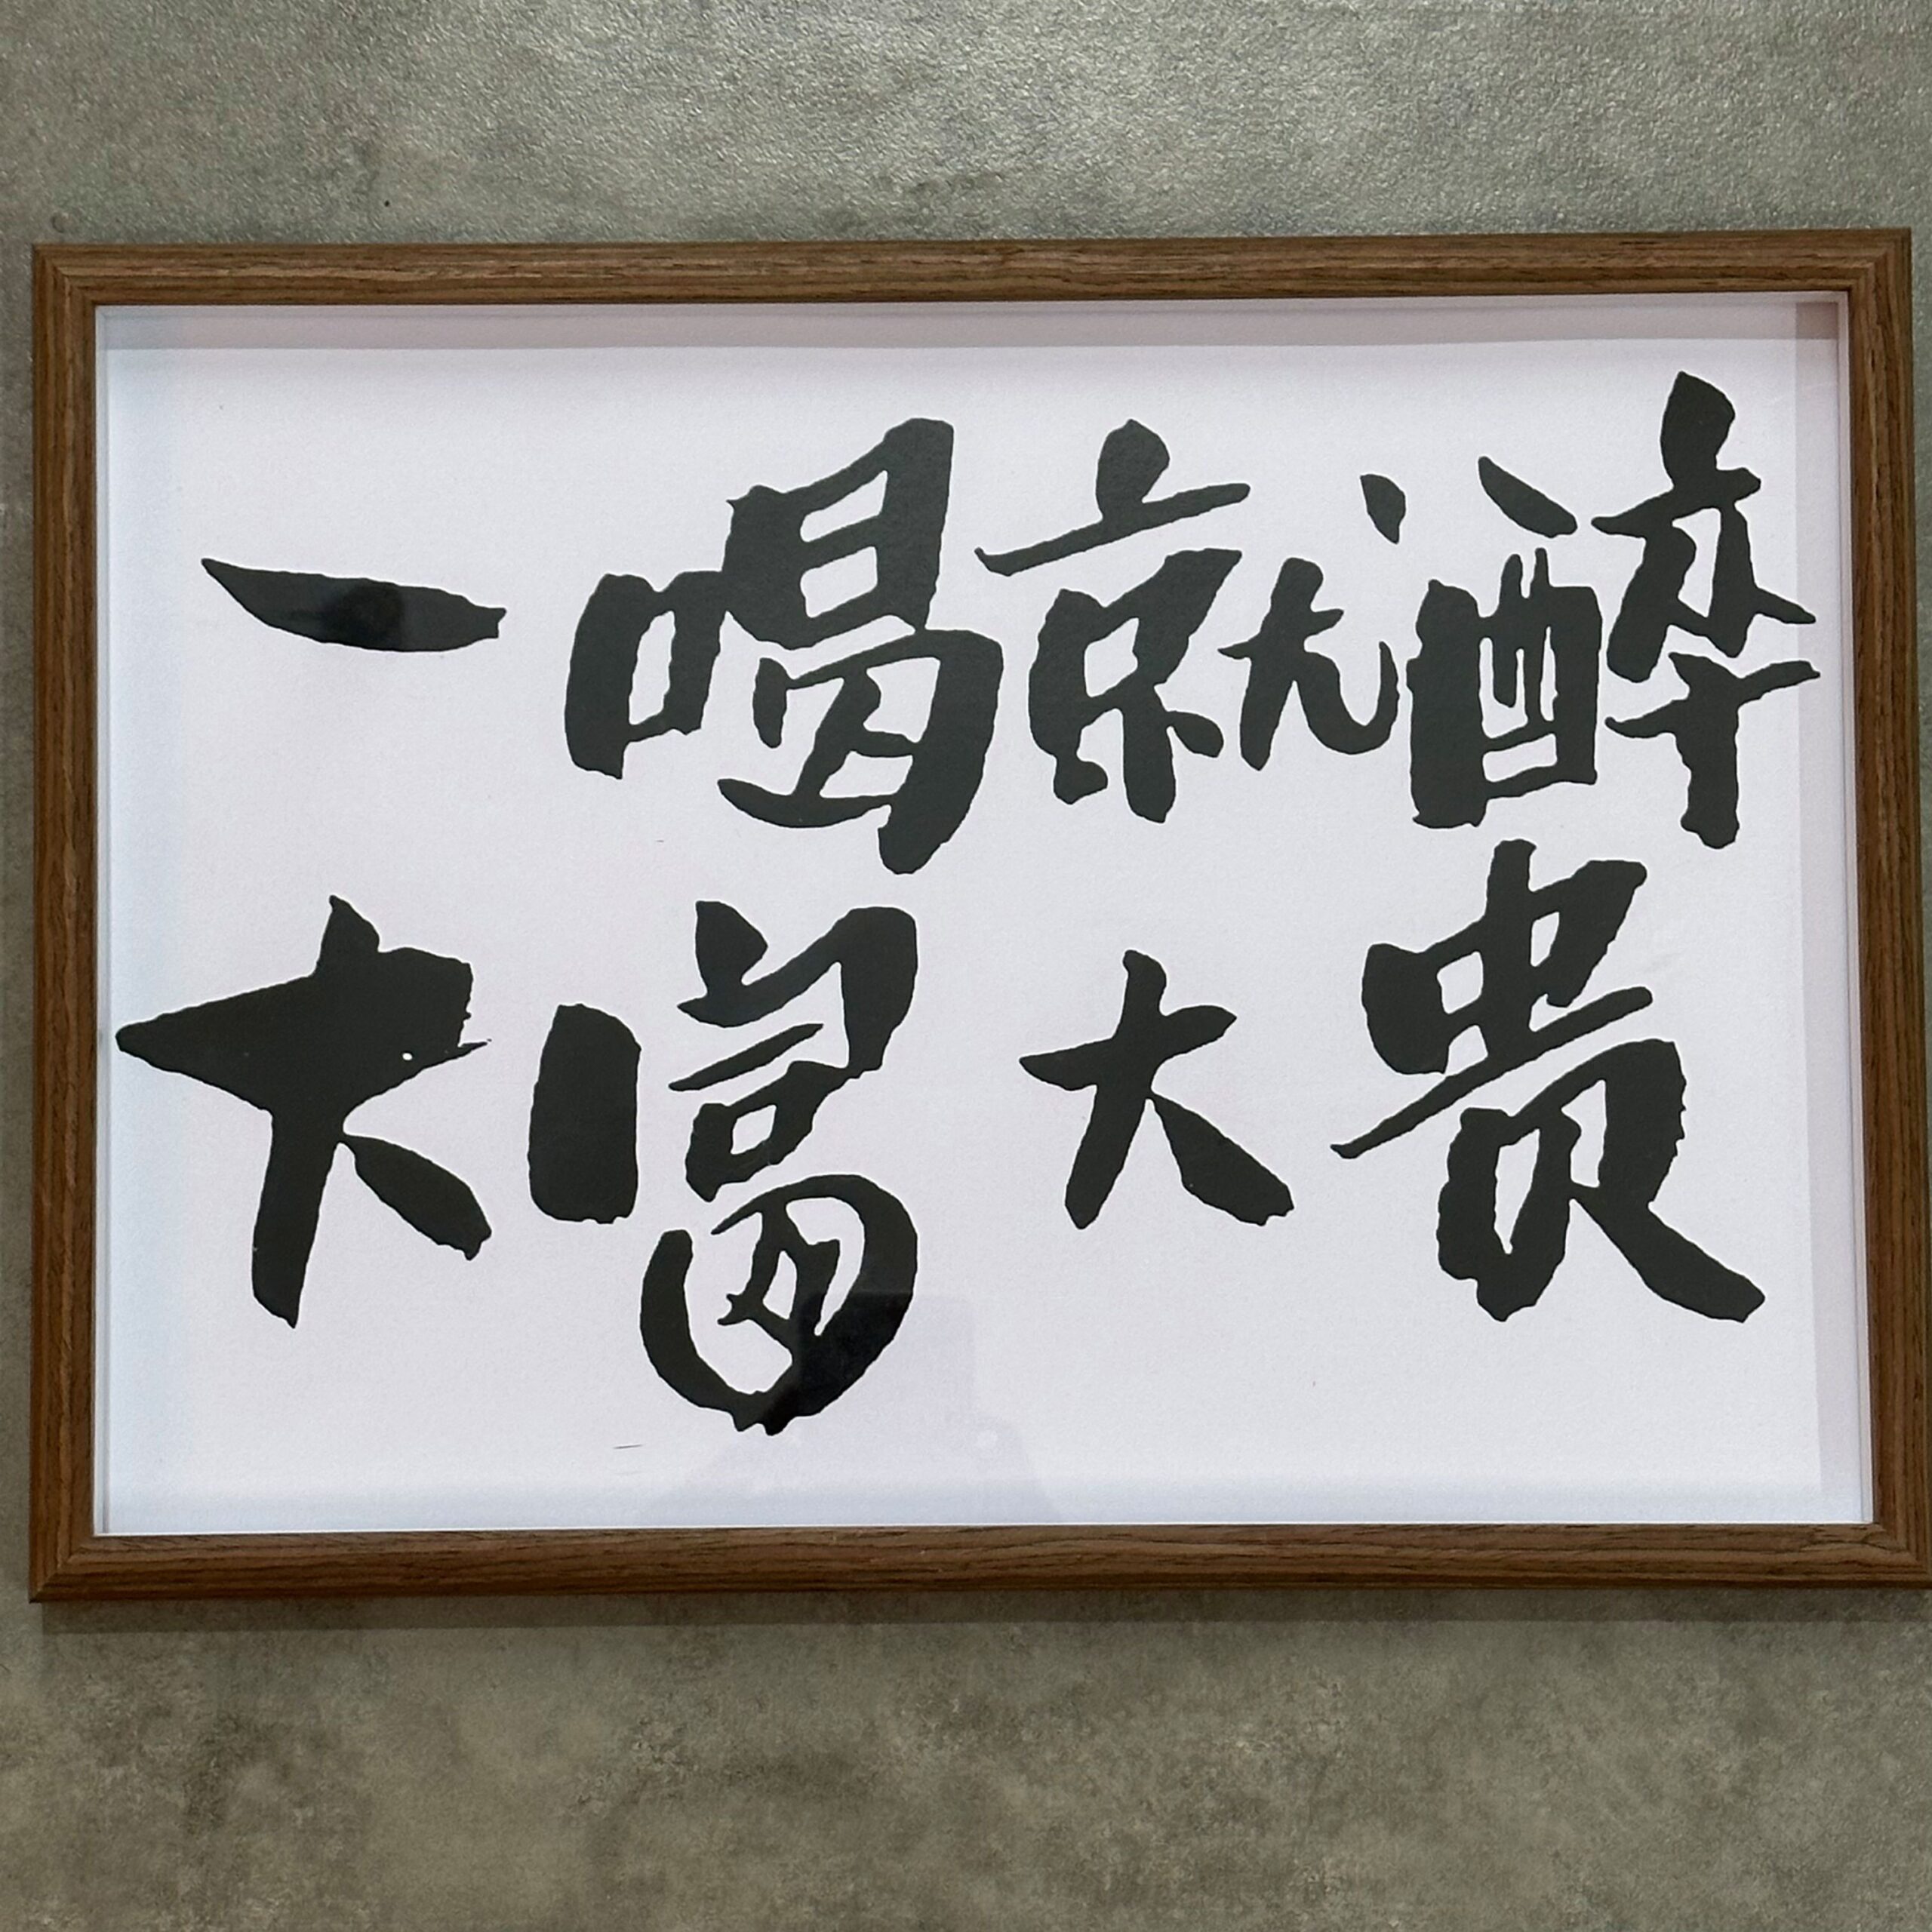 一喝就醉
大富大贵